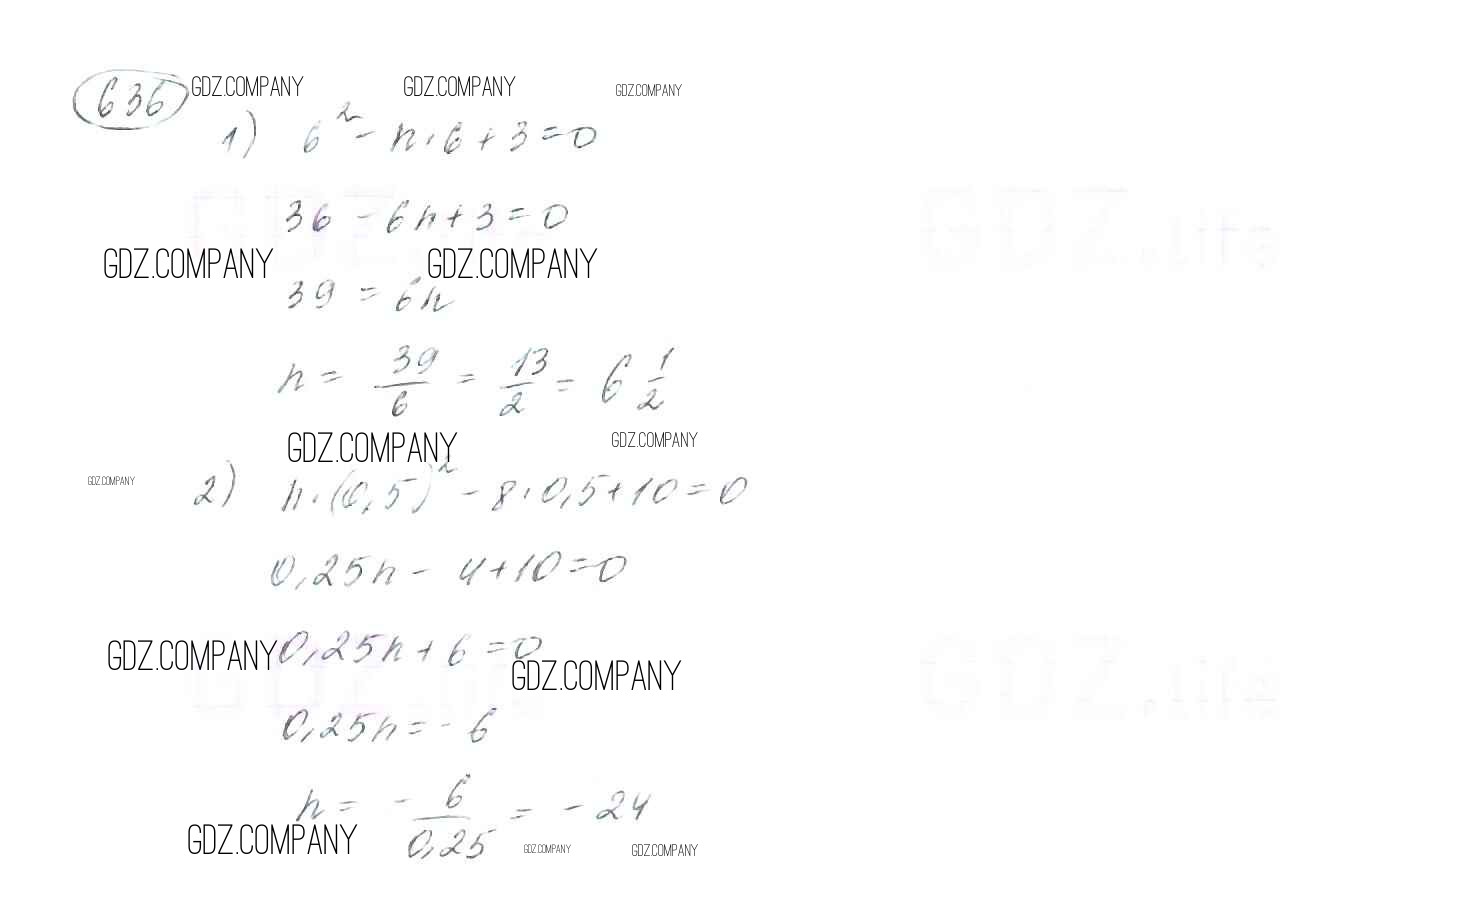 636 GDZ.COMPANY GDZ.COMPANY GDZ.COMPANY
1) 6² - n·6 + 3 = 0
GDZ.life GDZ.life
36 - 6n + 3 = 0
GDZ.COMPANY GDZ.COMPANY
39 = 6n
n = 39/6 = 13/2 = 6 1/2
GDZ.COMPANY GDZ.COMPANY
GDZ.COMPANY 2) n·(0,5)² - 8·0,5 + 10 = 0
0,25n - 4 + 10 = 0
GDZ.COMPANY 0,25n + 6 = 0
GDZ.COMPANY
GDZ.life GDZ.life
0,25n = - 6
n = - 6/0,25 = - 24
GDZ.COMPANY GDZ.COMPANY GDZ.COMPANY